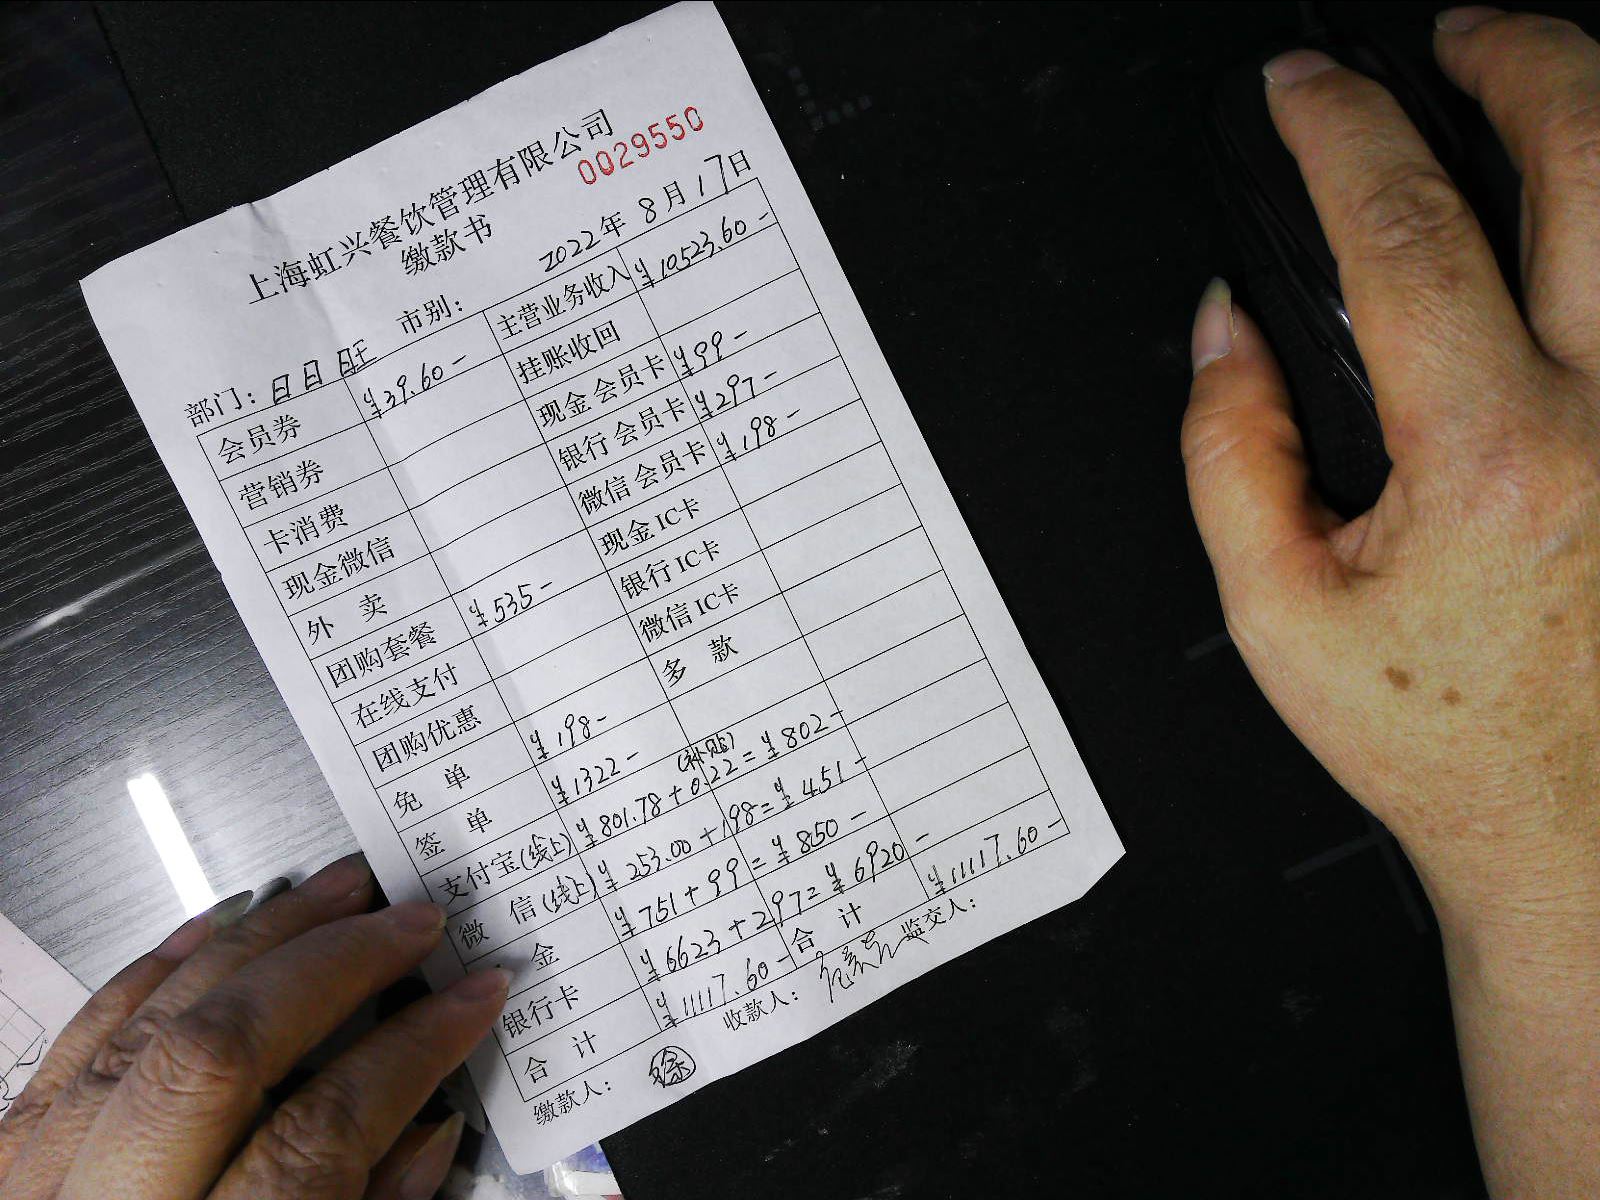 上海虹兴餐饮管理有限公司
缴款书
0029550
部门：日日旺 市别： 2022年8月17日
会员券 ¥39.60- 主营业务收入 ¥10523.60-
营销券 挂账收回
卡消费 现金会员卡 ¥99-
现金微信 银行会员卡 ¥297-
外卖 微信会员卡 ¥198-
团购套餐 ¥535- 现金IC卡
在线支付 银行IC卡
团购优惠 微信IC卡
免单 ¥198- 多款
签单 ¥1322-
支付宝(线上) ¥801.78+0.22(补贴)=¥802-
微信(线上) ¥253.00+198=¥451-
金 ¥751+99=¥850-
银行卡 ¥6623+297=¥6920-
合计 ¥11117.60- 合计 ¥11117.60-
缴款人：徐 收款人： 监交人：